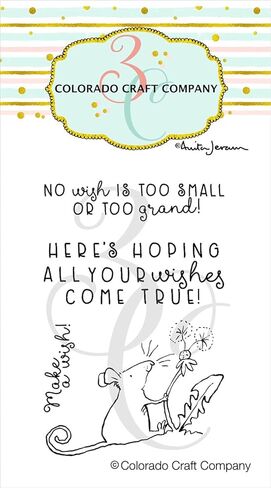 3C
COLORADO CRAFT COMPANY
©Anita Jeram
NO wish IS TOO SMALL
OR TOO grand!
HERE'S HOPING
ALL YOUR wishes
COME TRUE!
Make
a wish!
3C
©Colorado Craft Company